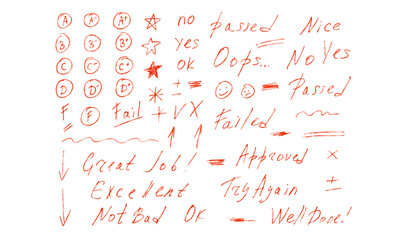 A A- A+ no passed Nice
B B- B+ yes Oops... No Yes
C C- C+ ok
D D- D+ ± = Passed
F F Fail + V X Failed
Great Job! Approved ×
Excellent Try Again ±
Not Bad OK Well Done!